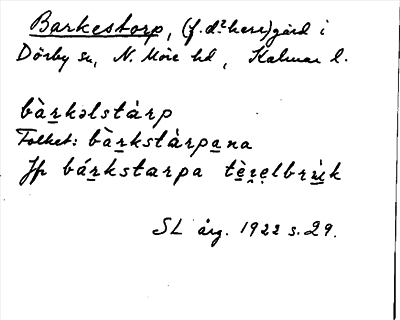 Barkestorp, (f.d. herr)gård i
Dörby sn, N. Möre hd, Kalmar l.
bàr̲kəlstàrp
Folket: bàr̲kstàrpa̲na
Jfr bár̲kstarpa tè̲r̲e̲lbrı̲k
SL årg. 1922 s. 29.